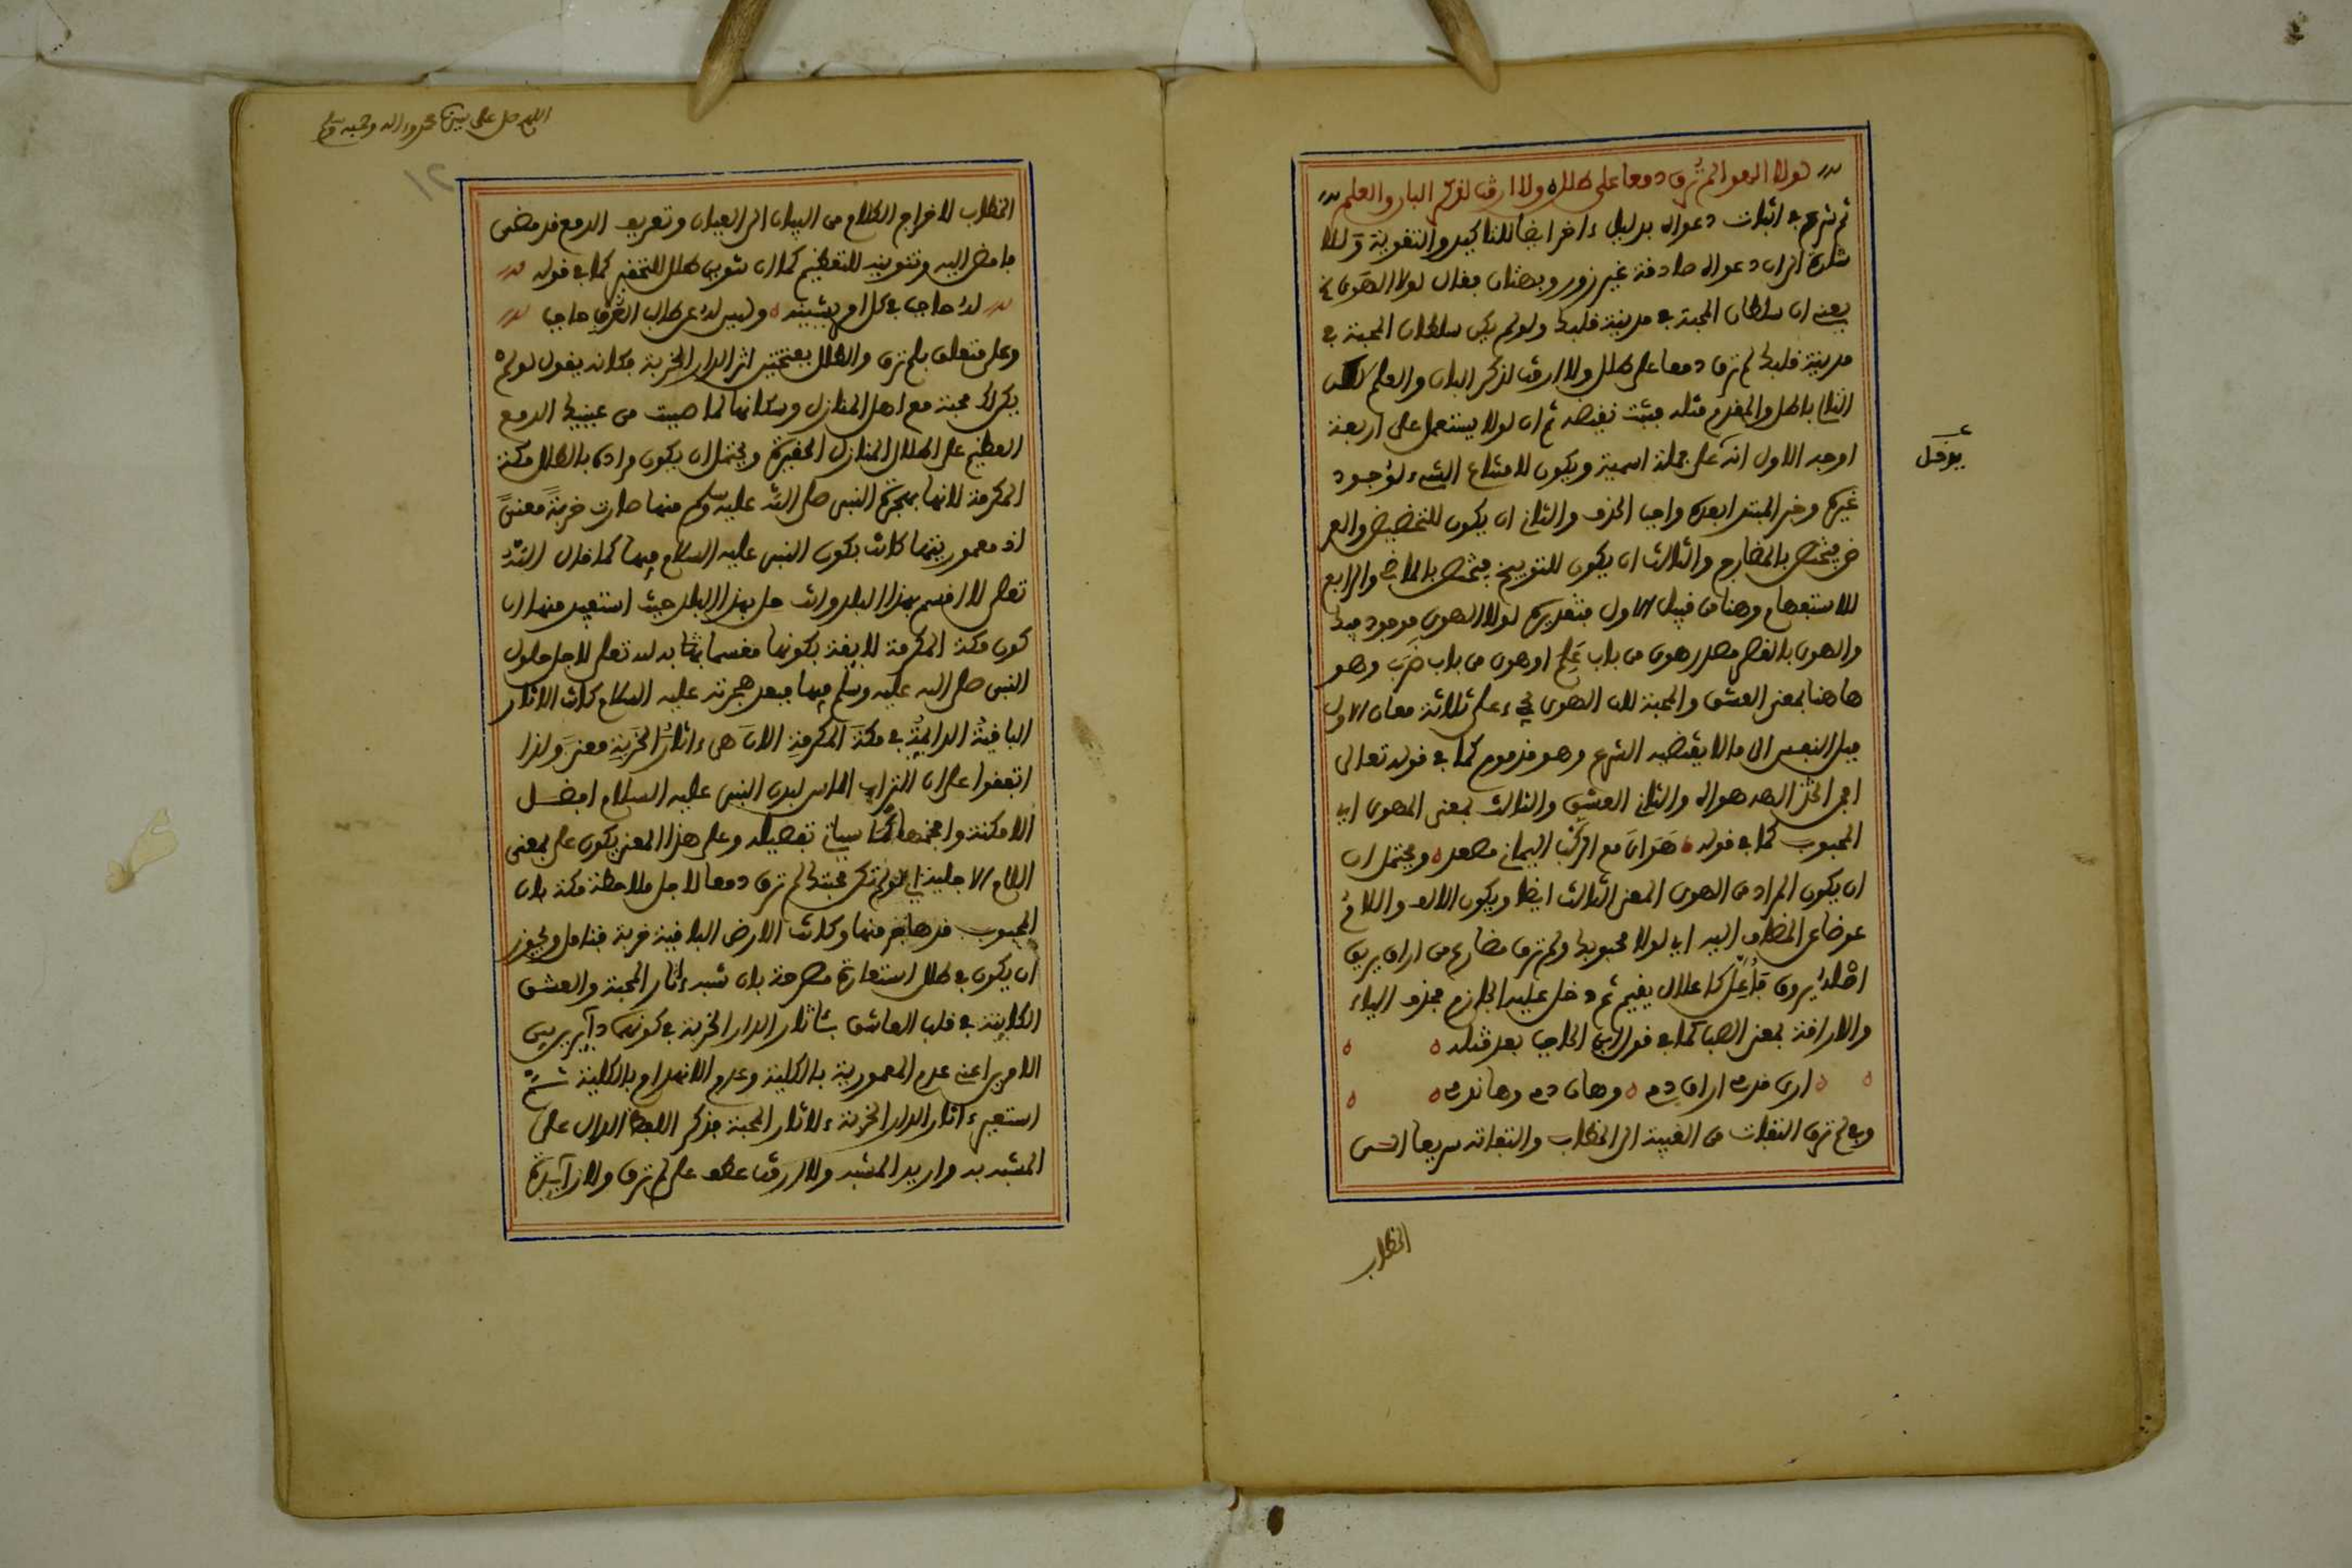 لولا الهوى لم ترق دمعا على طلل ولا ارقت لذكر البان والعلم
ثم شرع في اثبات دعواه بدليل ءاخر ايضا للتاكيد والتقوية و
شارة الى ان دعواه صادقة غير زور وبهتان فقال لولا الهوى
يعني ان سلطان المحبة في مدينة قلبك ولو لم يكن سلطان المحبة في
مدينة قلبك لم ترق دمعا على طلل ولا ارقت لذكر البان والعلم لكن
التالي باطل والمقدم مثله فثبت نقيضه ثم ان لولا يستعمل على اربعة
اوجه الاول انه على جملة اسمية ويكون لامتناع الشيء لوجود
غيره وخبر المبتدا بعده واجب الحذف والثاني ان يكون للتحضيض والعر
ض فيختص بالمضارع والثالث ان يكون للتوبيخ فيختص بالماضي والرابع
للاستفهام وهنا من قبيل الاول فتقديره لولا الهوى موجود فيك
والهوى بالقصر مصدر هوى من باب علم او هوى من باب ضرب وهو
هاهنا بمعنى العشق والمحبة لان الهوى يجيء على ثلاثة معان الاول
ميل النفس الى ما لا يقتضيه الشرع وهو مذموم كما في قوله تعالى
اجمن اتخذ الهه هواه والثاني العشق والثالث بمعنى المهوى اي
المحبوب كما في قوله هواي مع الركب اليماني مصعد ويحتمل ان
ان يكون المراد من الهوى المعنى الثالث ايضا ويكون الالف واللام
عوضا عن المضاف اليه اي لولا محبوبك ولم ترق مضارع من اراق يريق
اصله يروق فاعل كاعلال يقيم ثم دخل عليه الجازم فحذف الياء
والاراقة بمعنى الصب كما في قول ابن الحاجب بعد مثله
ارى قدمي اراق دمي وهان دمي وها ندمي
وفي لم ترق التفات من الغيبة الى الخطاب والتفاته سريعا
الخطاب
يوخل
اللهم صل على سيدنا محمد وءاله وصحبه وسلم
١٢
الخطاب لاخراج الكلام من البيان الى العيان وتعريف الدمع قد مضى
ما مضى اليه وتنوينه للتعظيم كما ان تنوين طلل للتحقير كما في قوله
له حاجب في كل امر يشينه وليس له عن طالب العرف حاجب
وعلى متعلق بلم ترق والطلل بفتحتين اثر الدار الخربة فكانه يقول لو لم
يكن لك محبة مع اهل المنازل وسكانها لما صببت من عينيك الدمع
العظيم على اطلال المنازل الحقيرة ويحتمل ان يكون مراده بالطلل مكة
المكرمة لانها بهجرة النبي صلى الله عليه وسلم منها صارت خربة معنى
اذ معموريتها كانت بكون النبي عليه السلام فيها كما قال الله
تعلى لا اقسم بهذا البلد وانت حل بهذا البلد حيث استفيد منها ان
كون مكة المكرمة لايقة بكونها مقسما بها به لله تعلى لاجل حلول
النبي صلى الله عليه وسلم فيها فبعد هجرته عليه السلام كانت الاثار
الباقية الدائمية في مكة المكرمة الان هي ءاثار الخربة معنى ولذا
اتفقوا على ان التراب الماس لبدن النبي عليه السلام افضل
الامكنة وافخمها كما سياتي تفصيله وعلى هذا المعنى يكون على بمعنى
اللام الاجلية اي لو لم تكن محبتك لم ترق دمعا لاجل ملاحظة مكة بان
المحبوب قد هاجر منها وكانت الارض الباقية خربة فتامل ويجوز
ان يكون في طلل استعارة مصرحة بان شبه ءاثار المحبة والعشق
الكاينة في قلب العاشق بئاثار الدار الخربة في كونها دايرين بين
الامرين اعني عدم المعمورية بالكلية وعدم الانهدام بالكلية ثم
استعير ءاثار الدار الخربة ءلاثار المحبة فذكر اللفظ الدال على
المشبه به واريد المشبه ولا ارقت عطف على لم ترق ولا زايدة